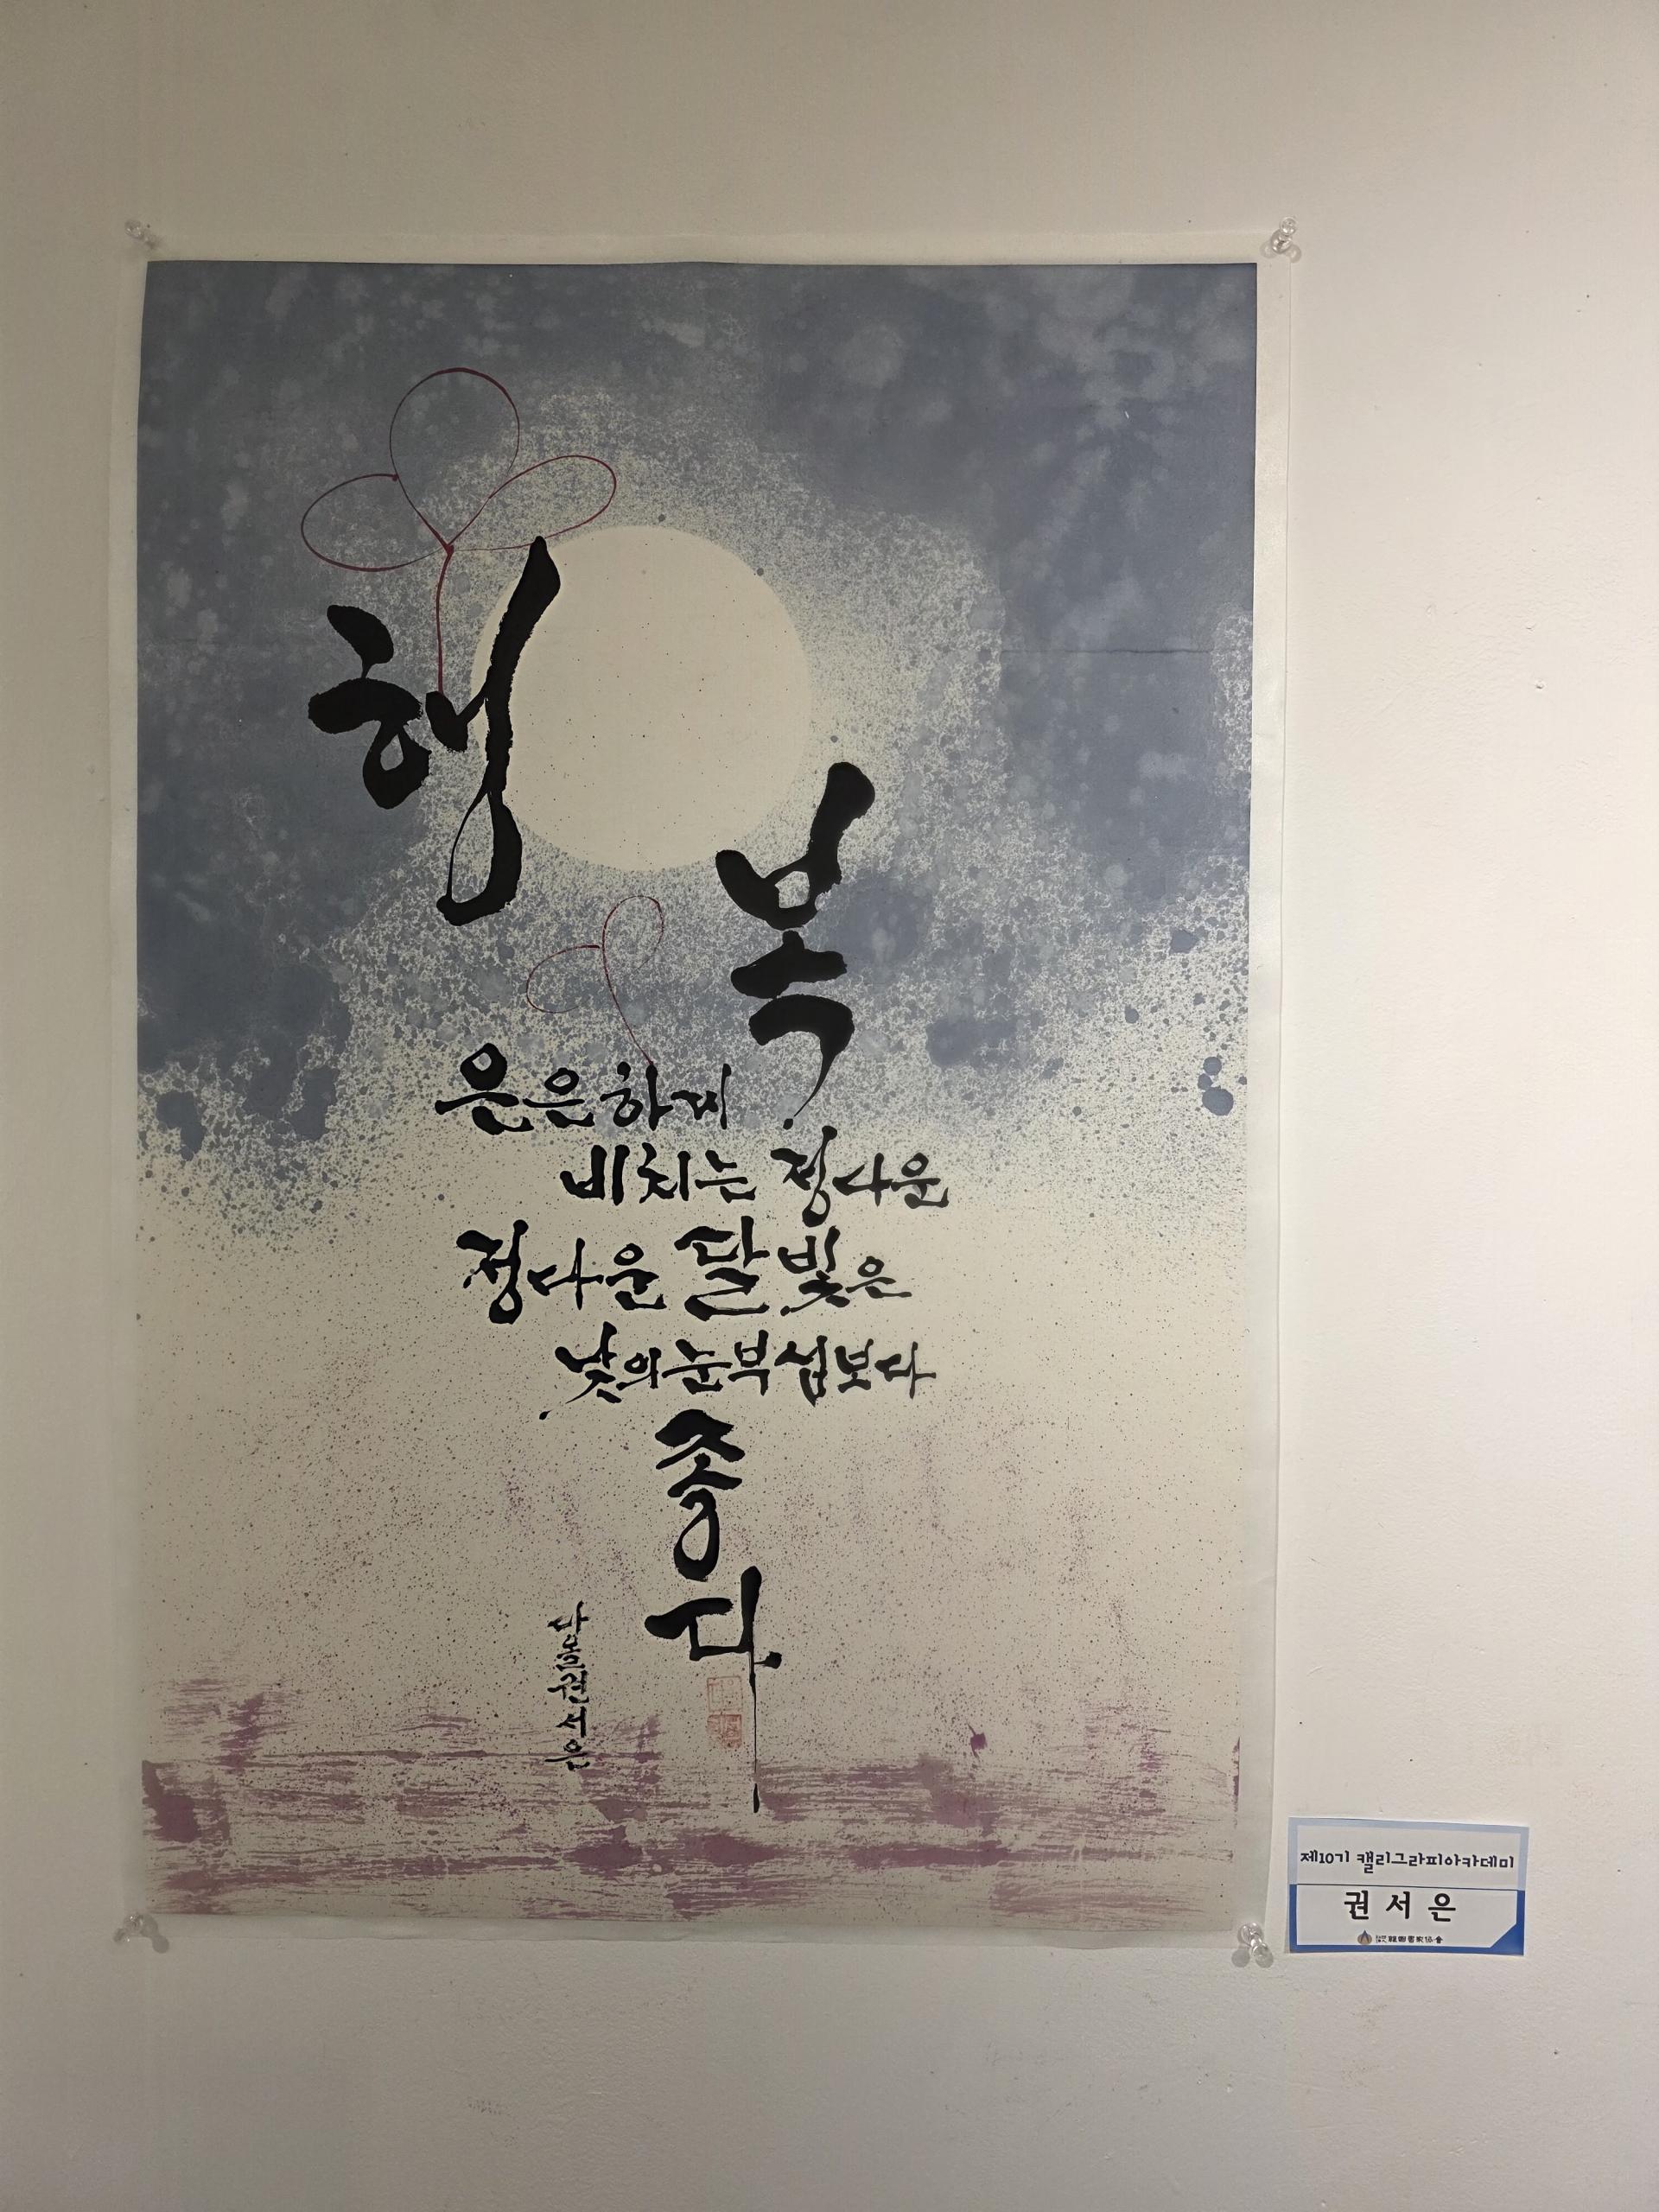 행복
은은하게
비치는 정다운
정다운 달빛은
낮의 눈부심보다
좋다
권서은
제10기 캘리그라피아카데미
권서은